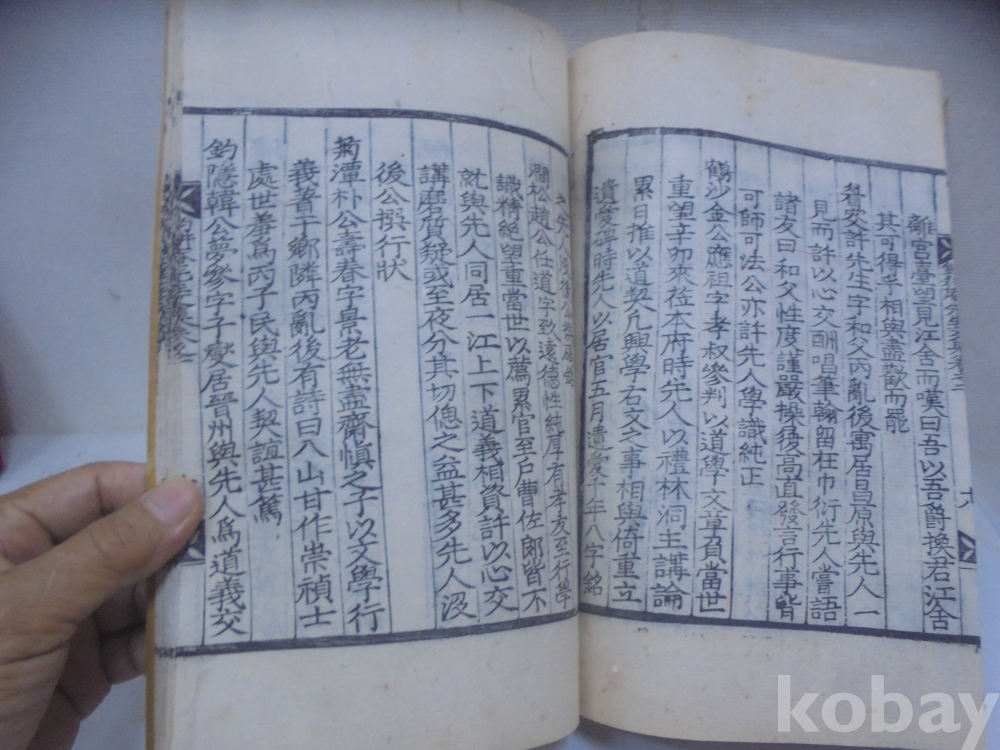 離宮臺望見江舍而嘆曰吾以吾爵換君江舍
其可得乎相與盡歡而罷
眷安許先生字和父丙亂後寓居昌原與先人一
見而許以心交酬唱筆翰留在巾衍先人嘗語
諸友曰和父性度謹嚴操履高直發言行事皆
可師可法公亦許先人學識純正
鶴沙金公應祖字孝叔參判以道學文章負當世
重望辛卯來莅本府時先人以禮林洞主講論
累日推以道契凡興學石文之事相與倚重立
遺愛碑時先人以居官五月遺愛千年八字銘
之先人沒後公
澗松趙公任道字致遠德性純厚有孝友至行學
識精絕望重當世以薦累官至戶曹佐郞皆不
就與先人同居一江上下道義相資許以心交
講磨質疑或至夜分其切偲之益甚多先人沒
後公撰行狀
菊潭朴公壽春字景老無盡齋愼之子以文學行
義著于鄕隣丙亂後有詩曰入山甘作崇禎士
處世羞爲丙子民與先人契誼甚篤
釣隱韓公夢參字子變居晉州與先人爲道義交
kobay